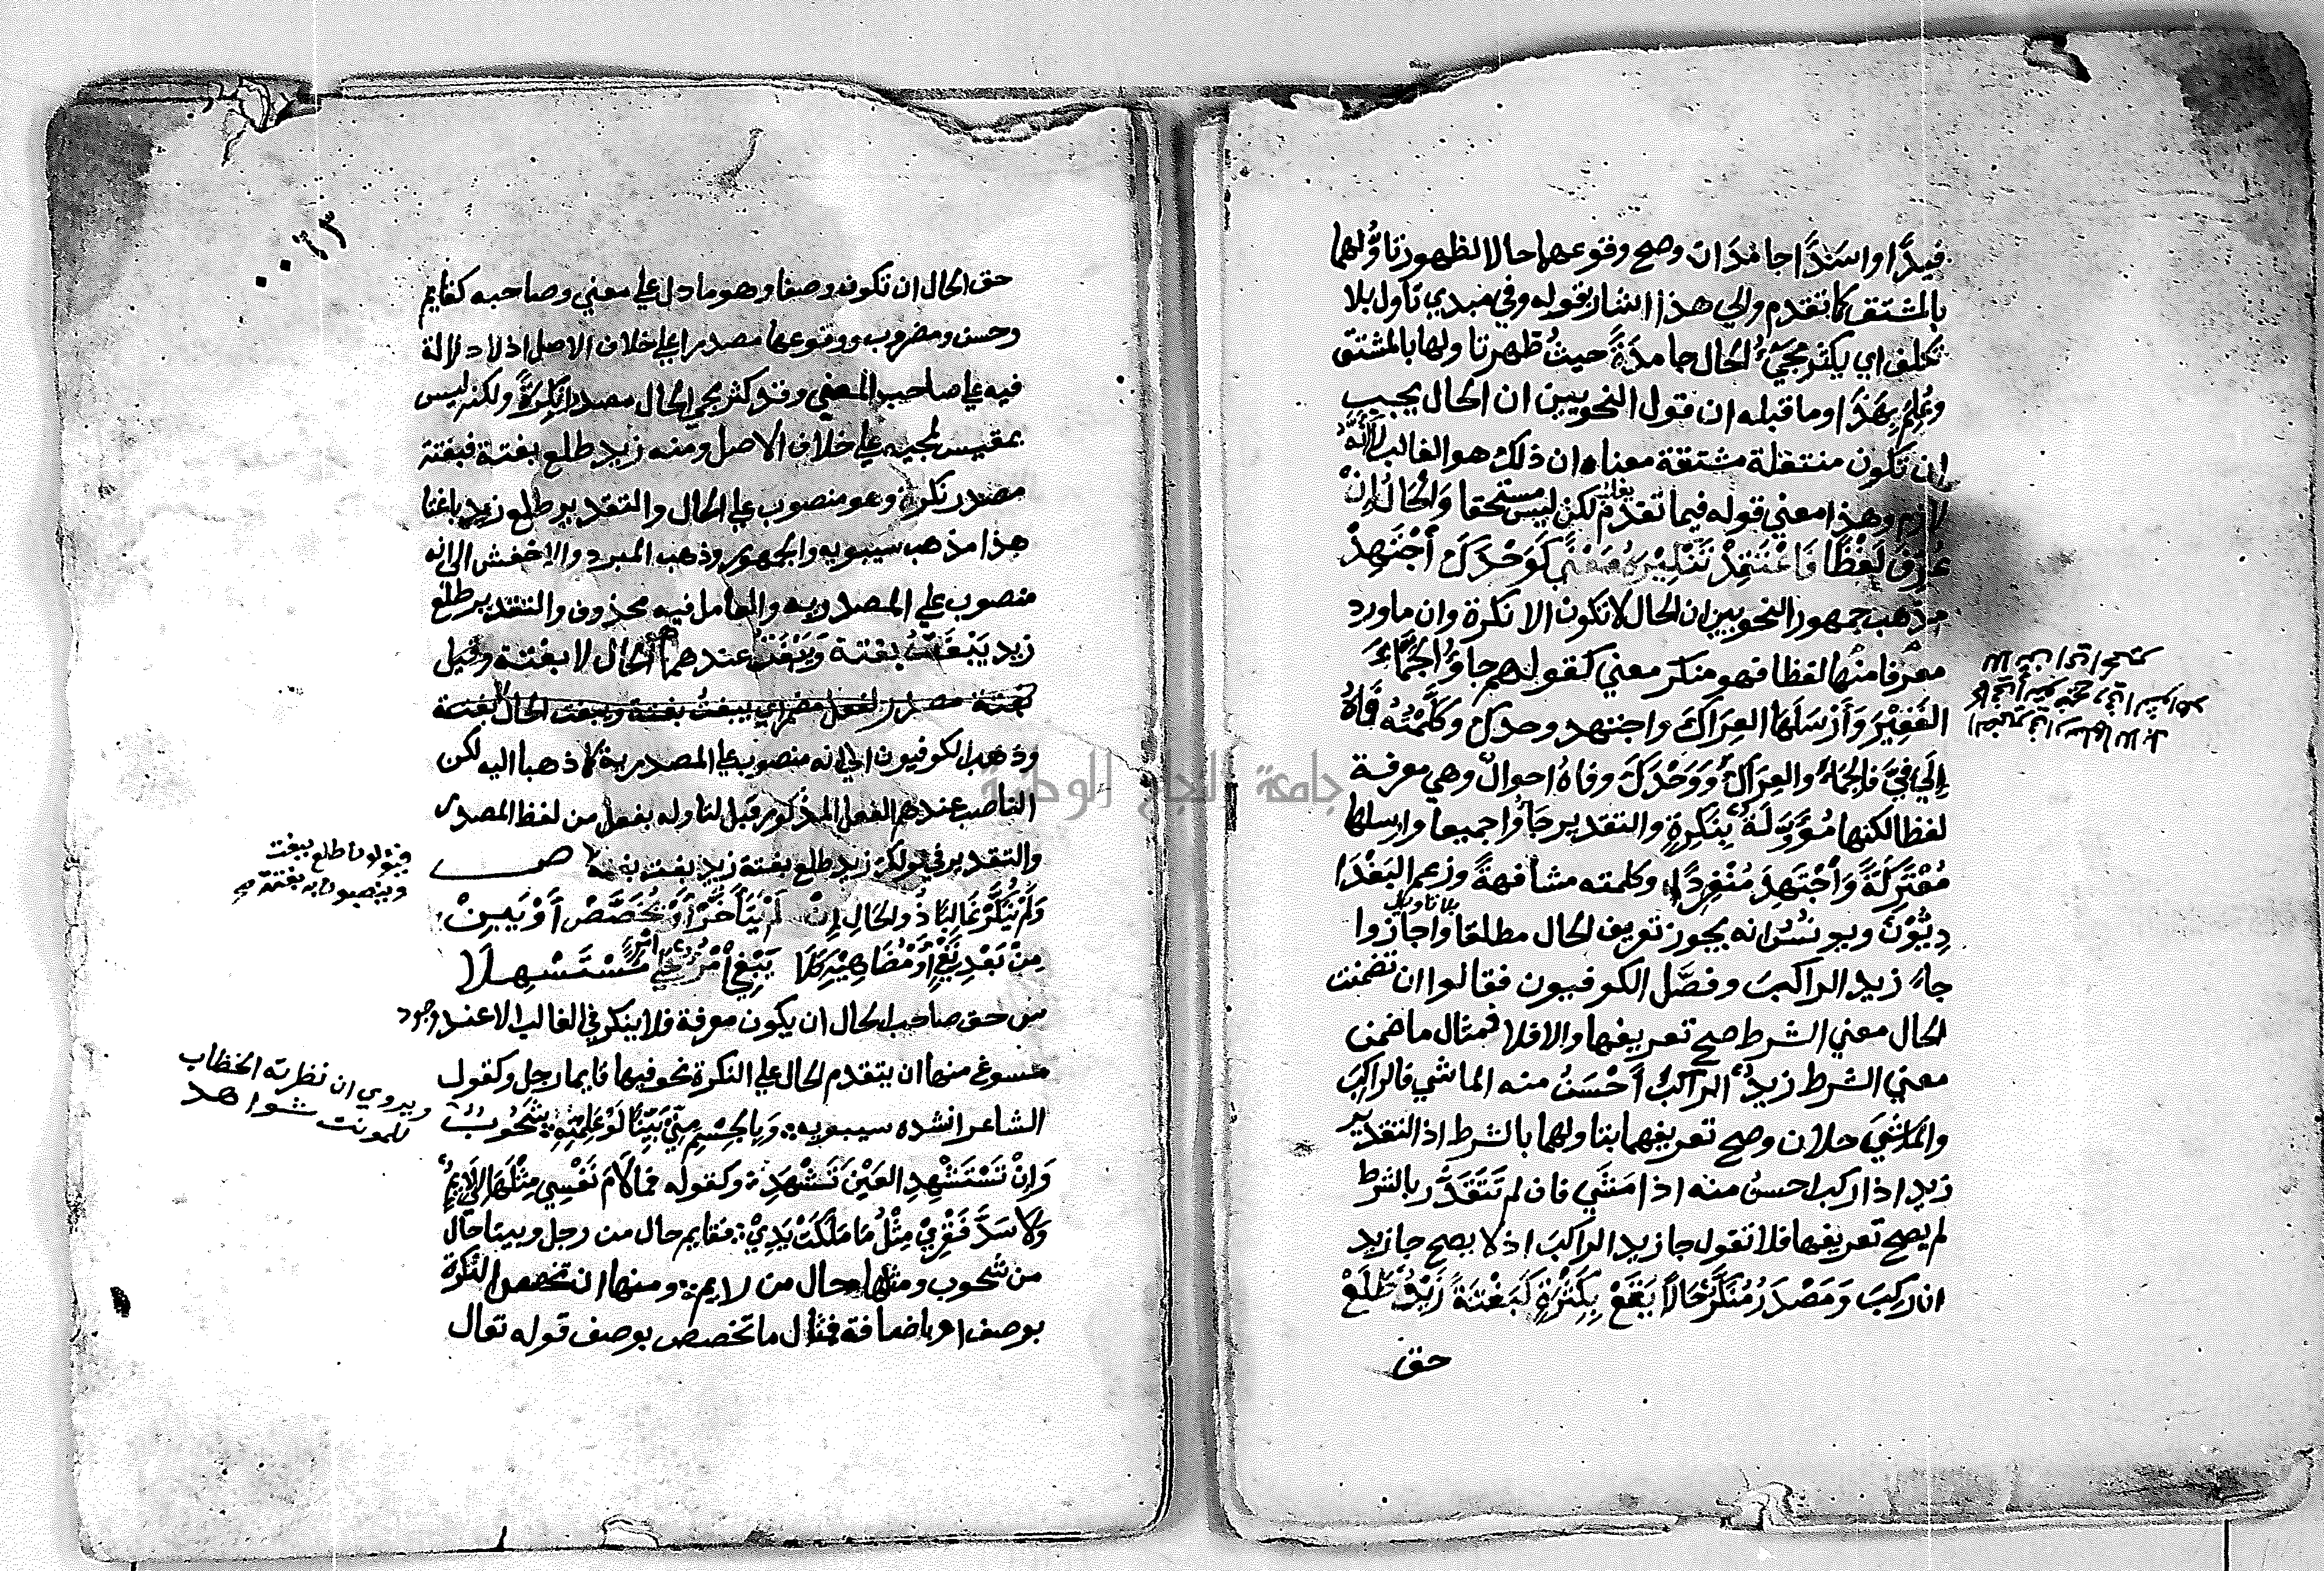 فيدًا واسدًا جامدان وصح وقوعهما حالا لظهور تاولهما
بالمشتق كما تقدم والى هذا اشار بقوله وفي مبدي تاول بلا
تكلف اي يكثر مجيُ الحال جامدةً حيثُ ظهر تاولها بالمشتق
وعُلِمَ بِهَذَا وما قبله ان قول النحويين ان الحال يجب
ان تكون منتقلة مشتقة معناه ان ذلك هو الغالب لا انه
لازم وهذا معني قوله فيما تقدم يغلب لكن ليس مستحقا وَالحَالُ اِنْ
عُرِّفَ لَفْظًا فَاعْتَقِدْ تَنْكِيْرَهُ مَعْنًى كَوَحْدَكَ اَجْتَهِدْ
مذهب جمهور النحويين ان الحال لا تكون الا نكرة وان ما ورد
معرفا منها لفظا فهو منكر معني كقولهم جاوُا الجَمَّاءَ
الغَفِيْرَ وَاَرْسَلَهَا العِرَاكَ واجتهد وحدك وَكلَّمْتُهُ فَاهُ
اِلَى فِيَّ فالجماءَ والعِرَاكَ وَوَحْدَكَ وفاهُ احوالٌ وهي معرفة
لفظا لكنها مُؤَوَّلَةٌ بِنَكِرَةٍ والتقدير جاوُا جميعا وارسلها
مُعْتَرِكَةً وَاجْتَهِدْ مُنْفَرِدًا وكلمته مشافهةً وزعم البَغْدَا
دِيُّوْنَ ويونسُ انه يجوز تعريف الحال مطلقا بلا تاويل واجازوا
جاءَ زيد الراكبَ وفصَّل الكوفيون فقالوا ان تضمنت
الحال معني الشرط صح تعريفها والا فلا فمثال ما ضمن
معني الشرط زيدٌ الراكبَ اَحْسَنُ منه الماشي فالراكبَ
والماشيَ حالان وصح تعريفهما بتاولهما بالشرط اذ التقدير
زيد اذا ركب احسنُ منه اذا مَشَي فان لم تَتَقَدَّر بالشرط
لم يصح تعريفها فلا تقول جا زيد الراكبَ اذ لا يصح جا زيد
ان ركبَ وَمَصْدَرٌ مُنَكَّرٌ حَالاً يَقَعْ بِكَثْرَةٍ كَبَغْتَةً زَيْدٌ طَلَعْ
حق
حق الحال ان تكون وصفا وهو ما دل علي معني وصاحبه كقايم
وحسن ومضروب ووقوعها مصدرا علي خلاف الاصل اذ لا دلالة
فيه علي صاحب المعني وقد كثر مجي الحال مصدرا نكرةً ولكنه ليس
بمقيس لمجيه علي خلاف الاصل ومنه زيد طلع بغتة فبغتة
مصدر نكرة وهو منصوب علي الحال والتقدير طلع زيد باغتا
هذا مذهب سيبويه والجمهور وذهب المبرد والاخفش الى انه
منصوب علي المصدرية والعامل فيه محذوف والتقدير طلع
زيد يَبْغَتُ بغتة وَيَبْغَتُ عندهما الحال لا بغتة وقيل
بغتة مصدر لفعل مضمر اي يبغت بغتة ويبغت الحال لا بغتة
وذهب الكوفيون الي انه منصوب علي المصدرية كما ذهبا اليه لكن
الناصب عندهم الفعل المذكور قبل لتاوله بفعل من لفظ المصدر
والتقدير في قولك زيد طلع بغتة زيد بغت بغتة ص
فيؤلون طلع ببغت
وينصبون به بغتة
وَلَمْ يُنَكَّرْ غَالِبًا ذُو الحَالِ اِنْ لَمْ يَتَأَخَّرْ اَوْ يُخَصَّصْ اَوْ يَبِنْ
مِنْ بَعْدِ نَفْيٍ اَوْ مُضَاهِيْهِ كَلَا يَبْغِ امْرُؤٌ عَلَي امْرِئٍ مُسْتَسْهِلَا
ش حق صاحب الحال ان يكون معرفة فلا ينكر في الغالب الا عند وجود
مسوغ منها ان يتقدم الحال علي النكرة نحو فيها قايما رجل وكقول
الشاعر انشده سيبويه وَبِالجِسْمِ مِنِّي بَيِّنًا لَوْ عَلِمْتِهِ شُحُوْبٌ
ويروي ان نظرته الخطاب
للمونث شواهد
وَاِنْ تَسْتَشْهِدِ العَيْنَ تَشْهَدِ وكقوله فما لَامَ نَفْسِي مِثْلَهَا لِيَ لَايِمٌ
وَلَا سَدَّ فَقْرِيْ مِثْلُ مَا مَلَكَتْ يَدِيْ فقايم حال من رجل وبينا حال
من شحوب ومثلها حال من لايم ومنها ان تخصص النكرة
بوصف او باضافة فمثال ما تخصص بوصف قوله تعال